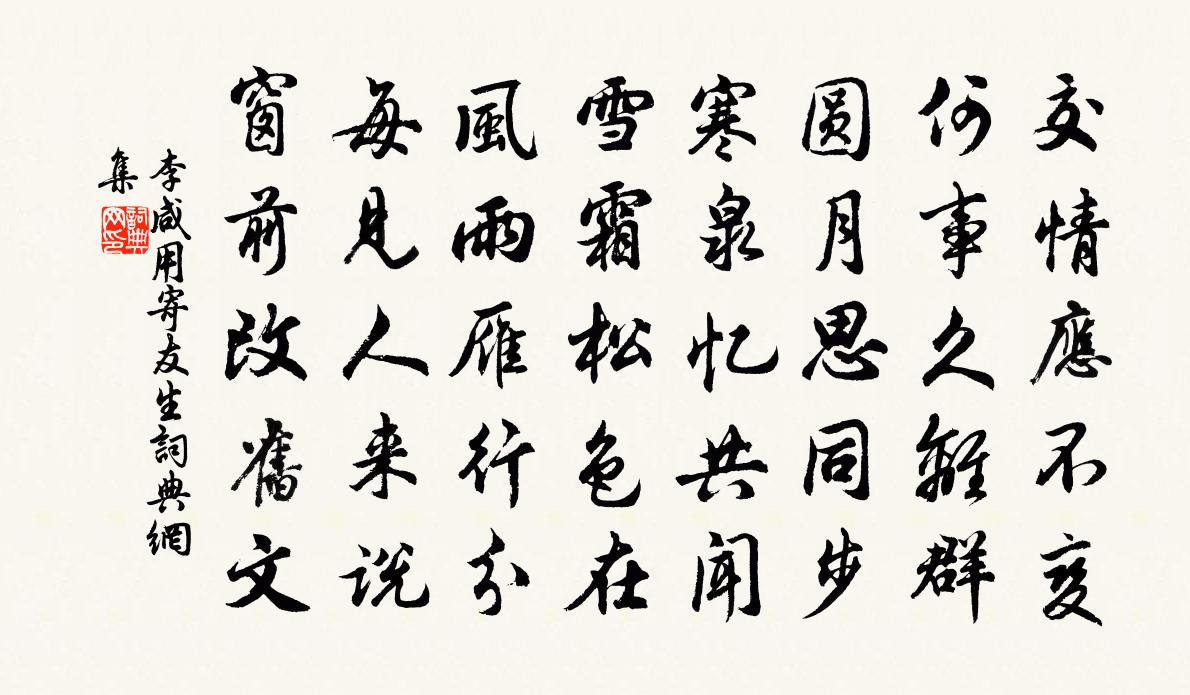 交情應不变
何事久離群
圓月思同步
寒泉忆共闻
雪霜松色在
風雨雁行分
每見人来说
窗前改舊文
李咸用寄友生詞典網
集
詞典
网印